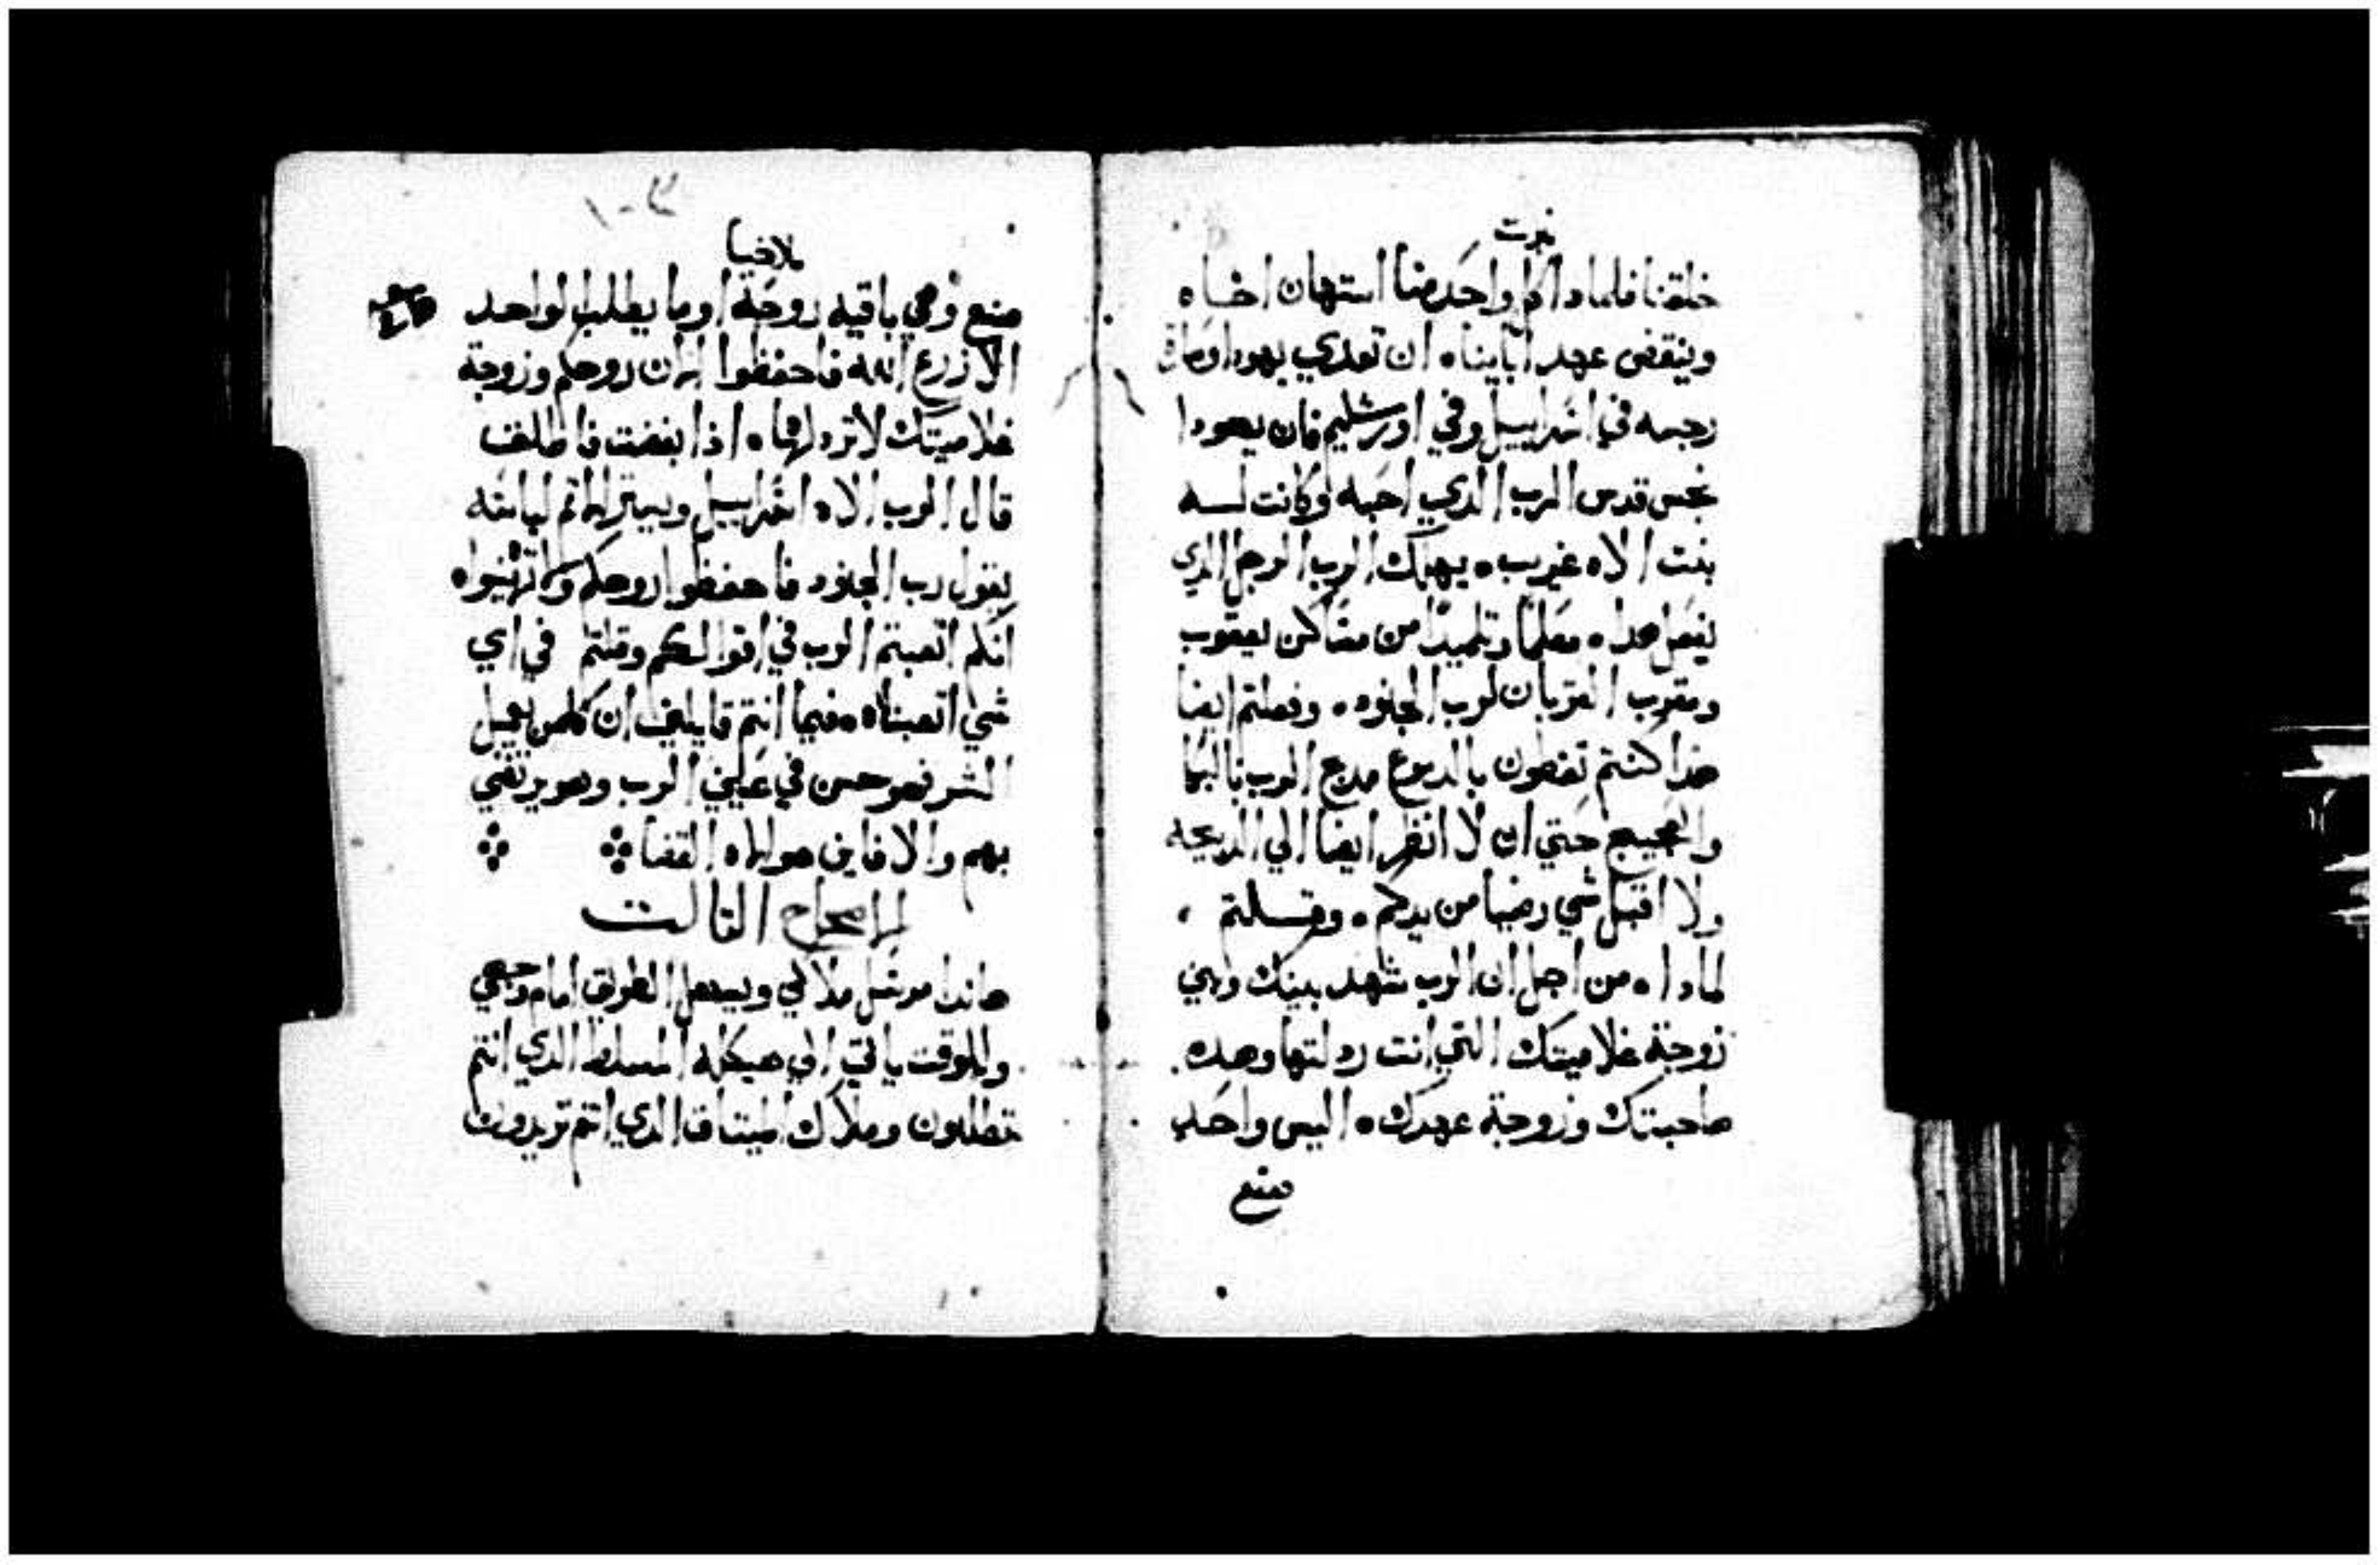 نبوت
خلقنا فلمادا كل واحد منا استهان اخاه
وينقض عهد اباينا ه ان تعدي يهودا وصارة
رجسه في اسراييل وفي اورشليم فان يهودا
نجس قدس الرب الدي احبه وكانت لـه
بنت الاه غريب ه يهلك الرب الرجل الدي
يفعل هدا ه معلما وتلميدا من مساكن يعقوب
ومقرب القربان لرب الجنود ه وفعلتم ايضا
هدا كنتم تغطون بالدموع مدبح الرب بالبكا
والعجيج حتي اني لا انظر ايضا الي الدبيحه
ولا اقبل شي رضيا من يدكم ه وقـلتم
لمادا ه من اجل ان الرب شهد بينك وبين
زوجة غلاميتك التي انت ردلتها وهده
صاحبتك وزوجة عهدك ه اليس واحد
صنع
١٠٣
ملاخيا
صنع وهي باقية روحه وما يطلب الواحد
الا زرع الله فاحفظوا ادن روحكم وزوجة
غلاميتك لا تردلها ه ادا بغضت فاطلق
قال الرب الاه اسراييل ويستر الاتم لباسه
يقول رب الجنود فاحفظوا روحكم ولا تهينوا ه
انكم اتعبتم الرب في اقوالكم وقلتم في اي
شي اتعبناه ه فيما انتم قايلين ان كلمن يعمل
الشر فهو حسن في عيني الرب وهو يرتضي
بهم والا فاين هو الاه القضا
الاصحاح التالت
هاندا مرسل ملاكي ويسهل الطريق امام وجهي
وللوقت ياتي الي هيكله المسلط الدي انتم
تطلبون وملاك الميتاق الدي انتم تريدون